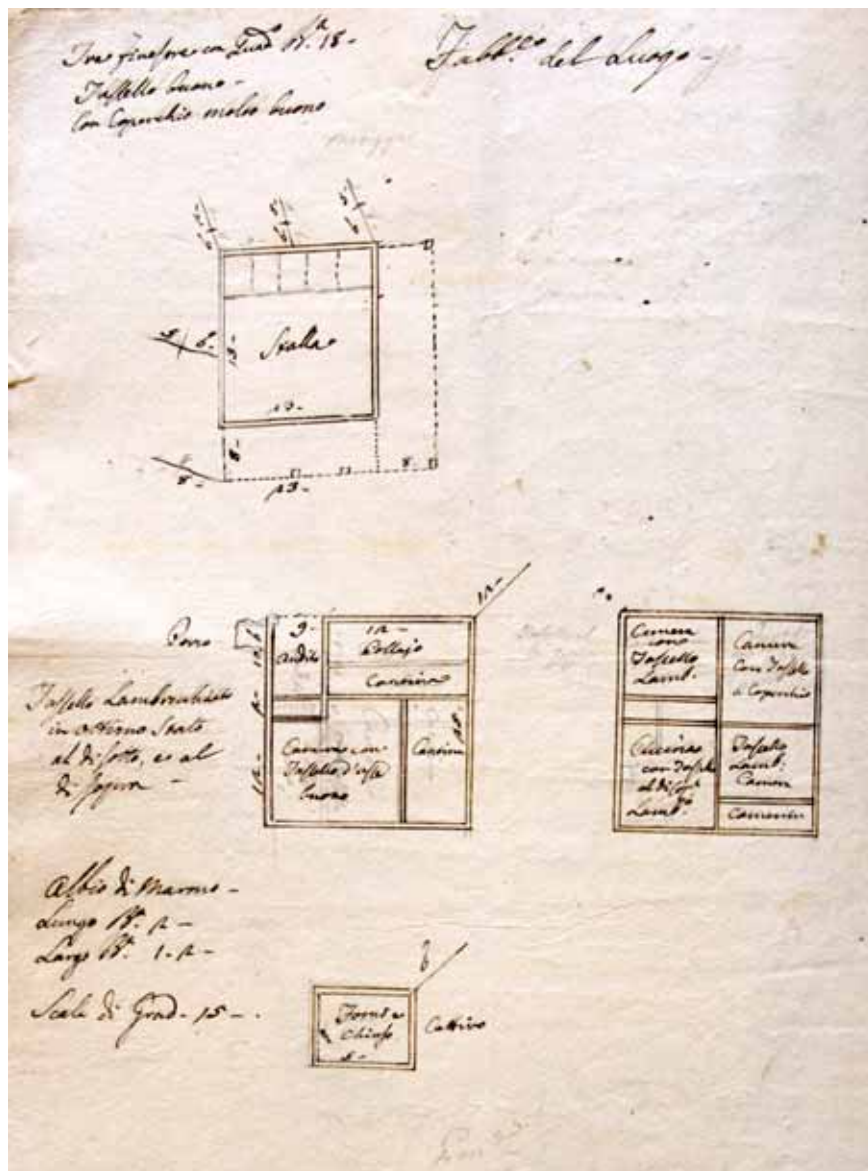 Fabb.co del Luogo -
Tre finestre con Quad.o N.o 18 -
Tassello buono -
Con Coperchio molto buono
Stalla
13 -
13 -
8 -
8 -
8 -
13 -
Pozzo
9 -
Andito
12 -
Pollajo
Cantina
Camera con
Tassello d'asse
buono
Cantina
Tassello Lambrechinato
in ottimo Stato
al di sotto, ed al
di sopra -
Camera
con
Tassello
Lamb.
Camera
con Tassello
a Coperchio
Cucina
con Tassello
al di sop.a
Lamb.to
Tassello
Lamb.
Camera
Camerin
Albio di Marmo -
Lungo B.a 2 -
Largo B.a 1. 2 -
Scala di Grad. 15 -
6
Forno e
Cattivo